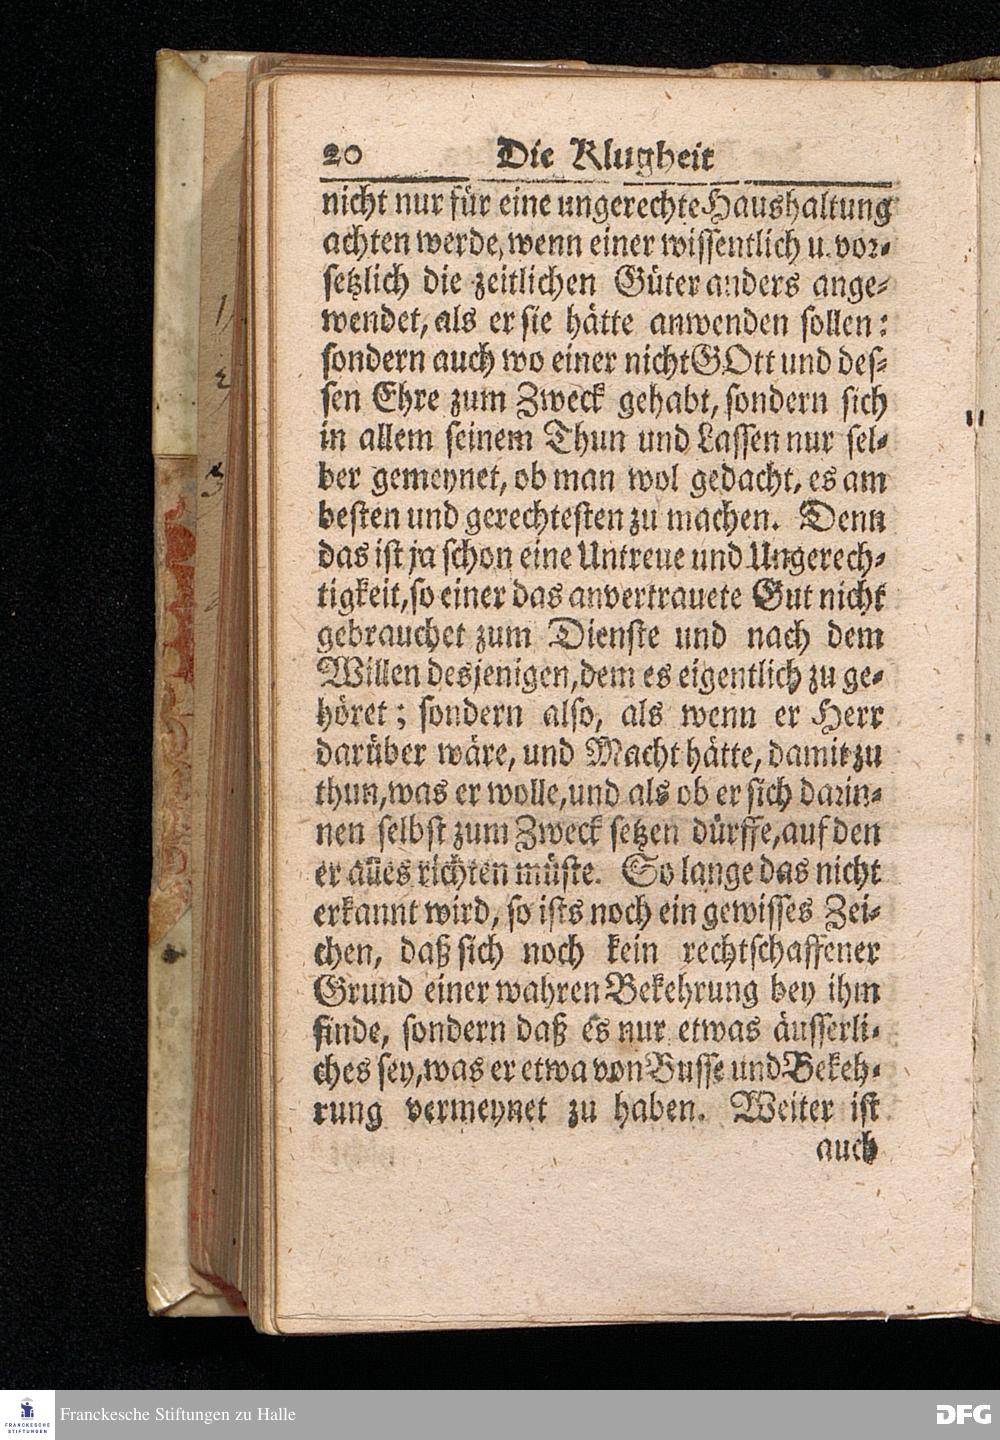 20 Die Klugheit
nicht nur für eine ungerechte Haushaltung
achten werde, wenn einer wissentlich u. vor-
setzlich die zeitlichen Güter anders ange-
wendet, als er sie hätte anwenden sollen:
sondern auch wo einer nicht GOtt und des-
sen Ehre zum Zweck gehabt, sondern sich
in allem seinem Thun und Lassen nur sel-
ber gemeynet, ob man wol gedacht, es am
besten und gerechtesten zu machen. Denn
das ist ja schon eine Untreue und Ungerech-
tigkeit, so einer das anvertrauete Gut nicht
gebrauchet zum Dienste und nach dem
Willen desjenigen, dem es eigentlich zu ge-
höret; sondern also, als wenn er Herr
darüber wäre, und Macht hätte, damit zu
thun, was er wolle, und als ob er sich darin-
nen selbst zum Zweck setzen dürffe, auf den
er alles richten müste. So lange das nicht
erkannt wird, so ists noch ein gewisses Zei-
chen, daß sich noch kein rechtschaffener
Grund einer wahren Bekehrung bey ihm
finde, sondern daß es nur etwas äusserli-
ches sey, was er etwa von Busse und Bekeh-
rung vermeynet zu haben. Weiter ist
auch
1)
2)
3
FRANCKESCHE
STIFTUNGEN
Franckesche Stiftungen zu Halle
DFG